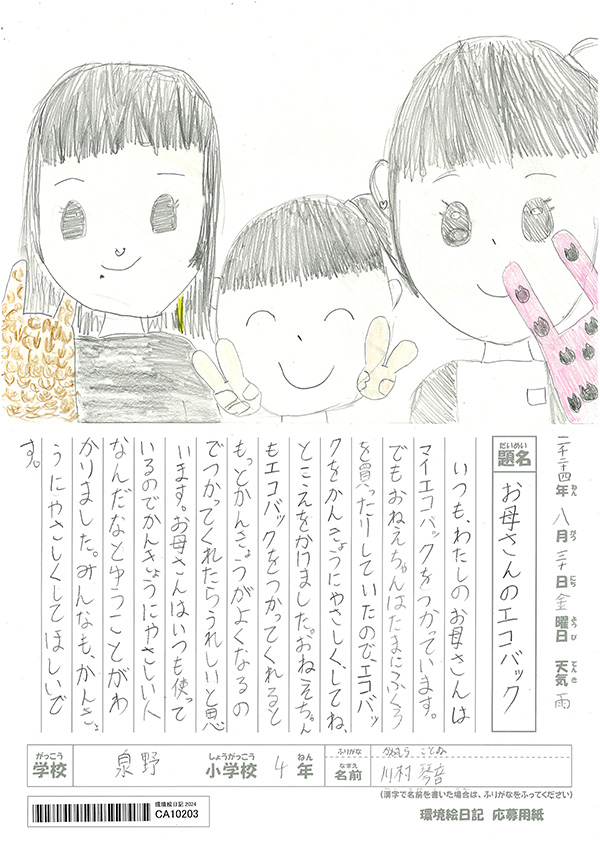 二千二十四年 八月 三十日 金曜日 天気 雨
題名 お母さんのエコバック
いつも、わたしのお母さんは
マイエコバックをつかっています。
でもおねえちゃんはたまにふくろ
を買ったりしていたので、エコバッ
クをかんきょうにやさしくしてね、
とこえをかけました。おねえちゃん
もエコバックをつかってくれると
もっとかんきょうがよくなるの
でつかってくれたらうれしいと思
います。お母さんはいつも使って
いるのでかんきょうにやさしい人
なんだなとゆうことがわ
かりました。みんなも、かんきょ
うにやさしくしてほしいで
す。
学校 泉野 小学校 4年 名前 川村 琴音
(漢字で名前を書いた場合は、ふりがなをふってください)
環境絵日記 2024
CA10203
環境絵日記 応募用紙